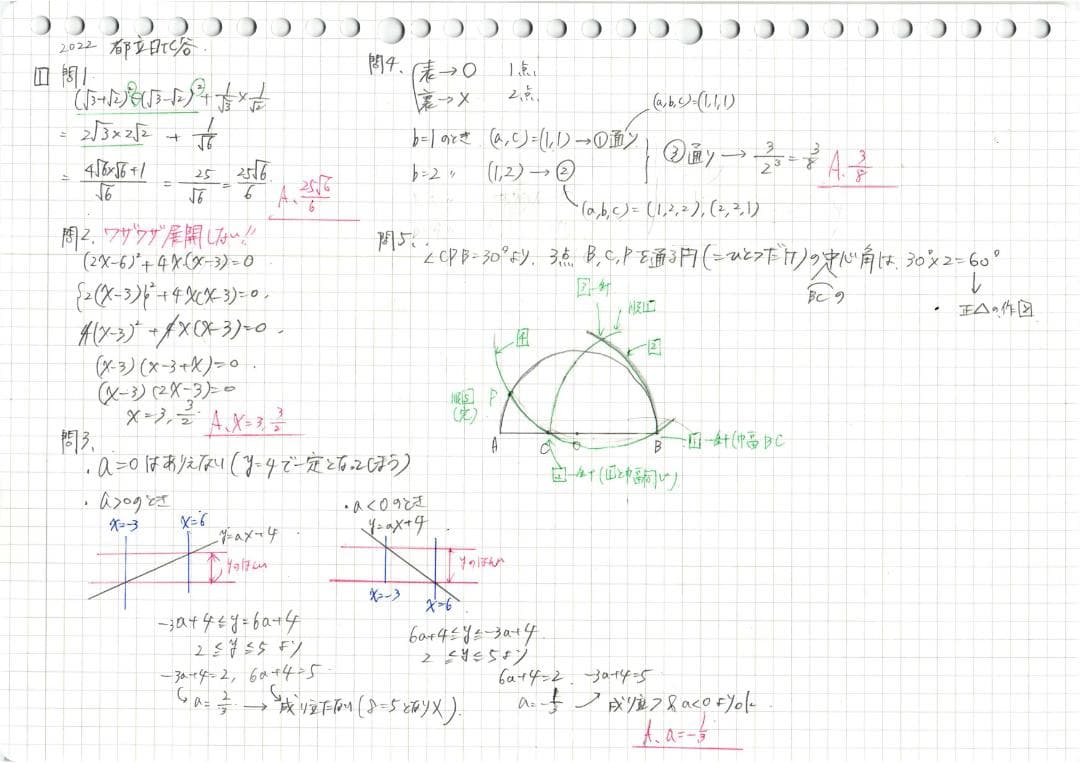 2022 都立日比谷.
1 問1
(√3+√2)²-(√3-√2)²+1/√3×1/√2
= 2√3×2√2 + 1/√6
= (4√6×√6+1)/√6 = 25/√6 = 25√6/6
A. 25√6/6
問2. ワザワザ展開しない!!
(2x-6)²+4x(x-3)=0
{2(x-3)}²+4x(x-3)=0.
4(x-3)²+4x(x-3)=0.
(x-3)(x-3+x)=0.
(x-3)(2x-3)=0
x=3, 3/2.
A. x=3, 3/2
問3.
・a=0はありえない(y=4で一定となってしまう)
・a>0のとき
x=-3
x=6
y=ax+4
yのはんい
-3a+4≦y≦6a+4
2≦y≦5より
-3a+4=2, 6a+4=5
a=2/3 → 成り立たない(8=5となり×).
・a<0のとき
y=ax+4
yのはんい
x=-3
x=6
6a+4≦y≦-3a+4
2≦y≦5より
6a+4=2. -3a+4=5
a=-1/3 成り立つ&a<0よりok
A. a=-1/3
問4.
表→0 1点
裏→× 2点
b=1のとき (a,c)=(1,1)→①通り
(a,b,c)=(1,1,1)
b=2 〃 (1,2)→②
(a,b,c)=(1,2,2),(2,2,1)
③通り → 3/2³=3/8
A. 3/8
問5.
∠CPB=30°より. 3点 B,C,Pを通る円(=ひとつだけ)の中心角は. 30°×2=60°
BCの
・正△の作図
3
2
4
P
A
B
1 針(巾高BC